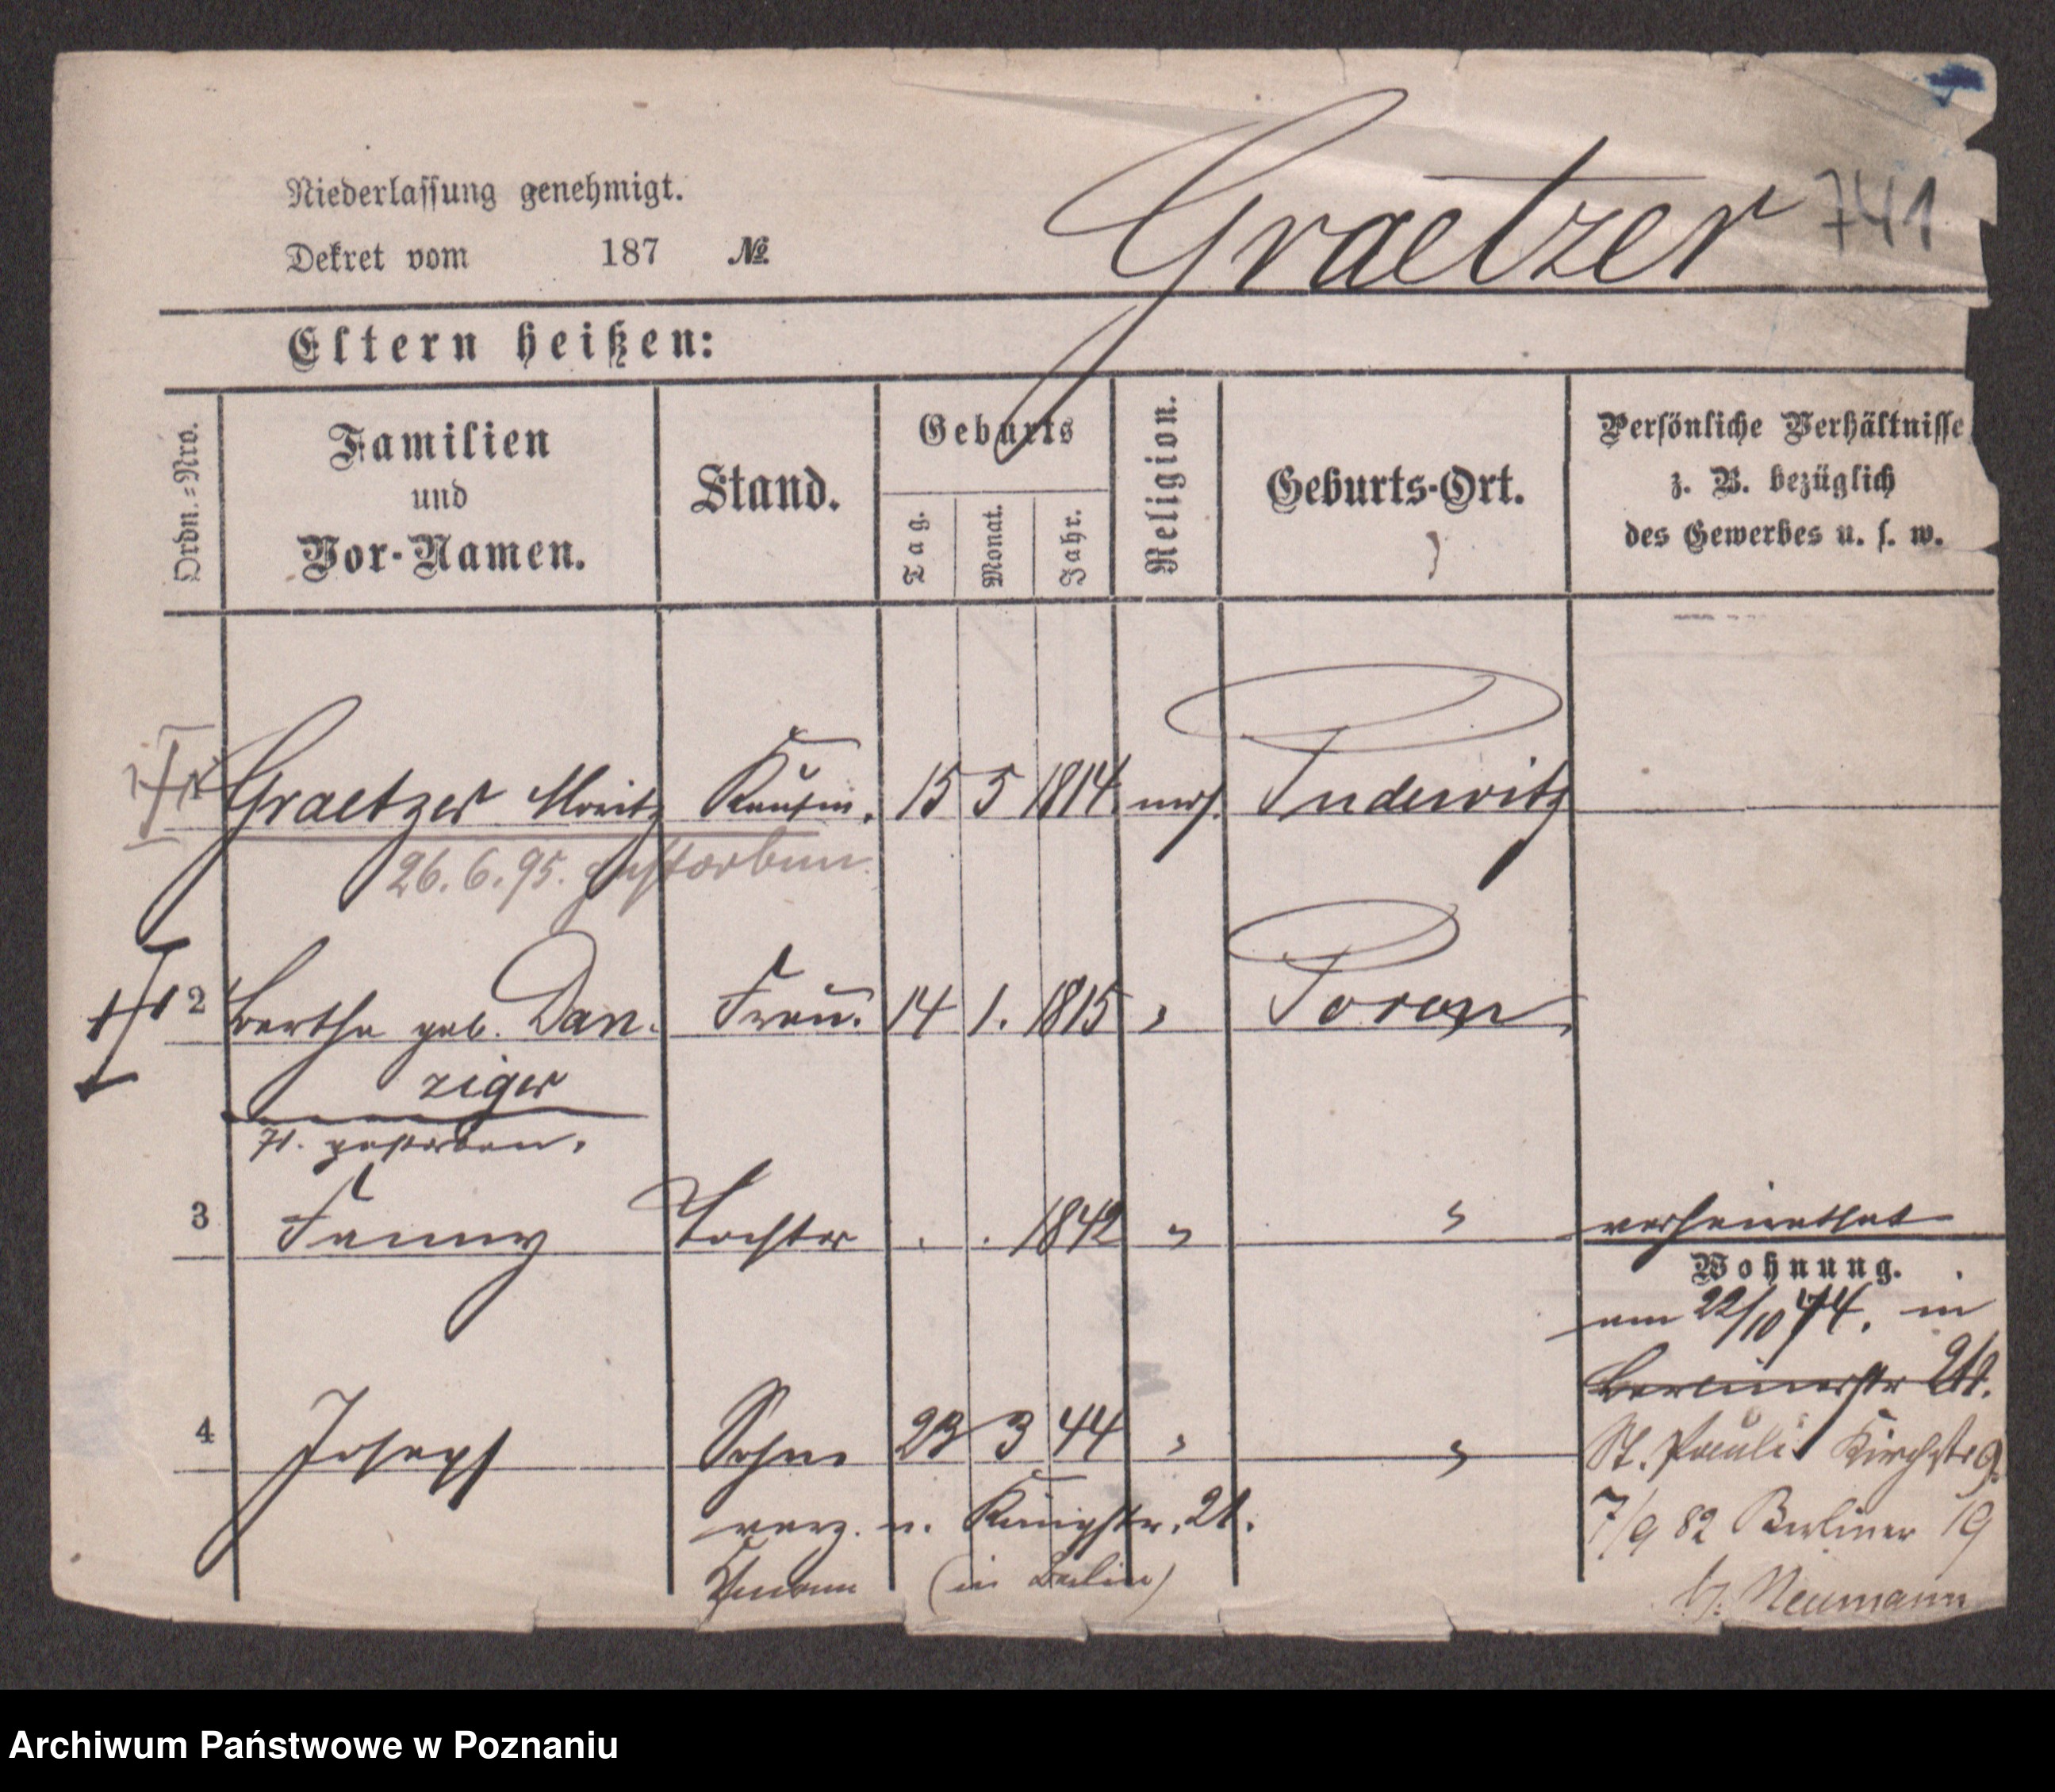 Niederlassung genehmigt.
Dekret vom 187 №
Graetzer 741
Eltern heißen:
Ordn.-Nro.
Familien
und
Vor-Namen.
Stand.
Geburts
Tag.
Monat.
Jahr.
Religion.
Geburts-Ort.
Persönliche Verhältnisse
z. B. bezüglich
des Gewerbes u. s. w.
1 Graetzer Moritz Kaufm. 15 5 1814 mos. Pudewitz
26.6.95. gestorben
2 Bertha geb. Dan- Frau. 14 1. 1815 "
ziger
gestorben.
3 Fanny Tochter . . 1842 " " verheirathet
Wohnung.
am 22/10 74. in
4 Joseph Sohn 23 3 44 " "
Berlinerstr
St. Pauli Kirchstr 9.
verz. n. Königstr. 21.
7/9 82 Berliner 19
(in Berlin)
b/. Neumann
Archiwum Państwowe w Poznaniu